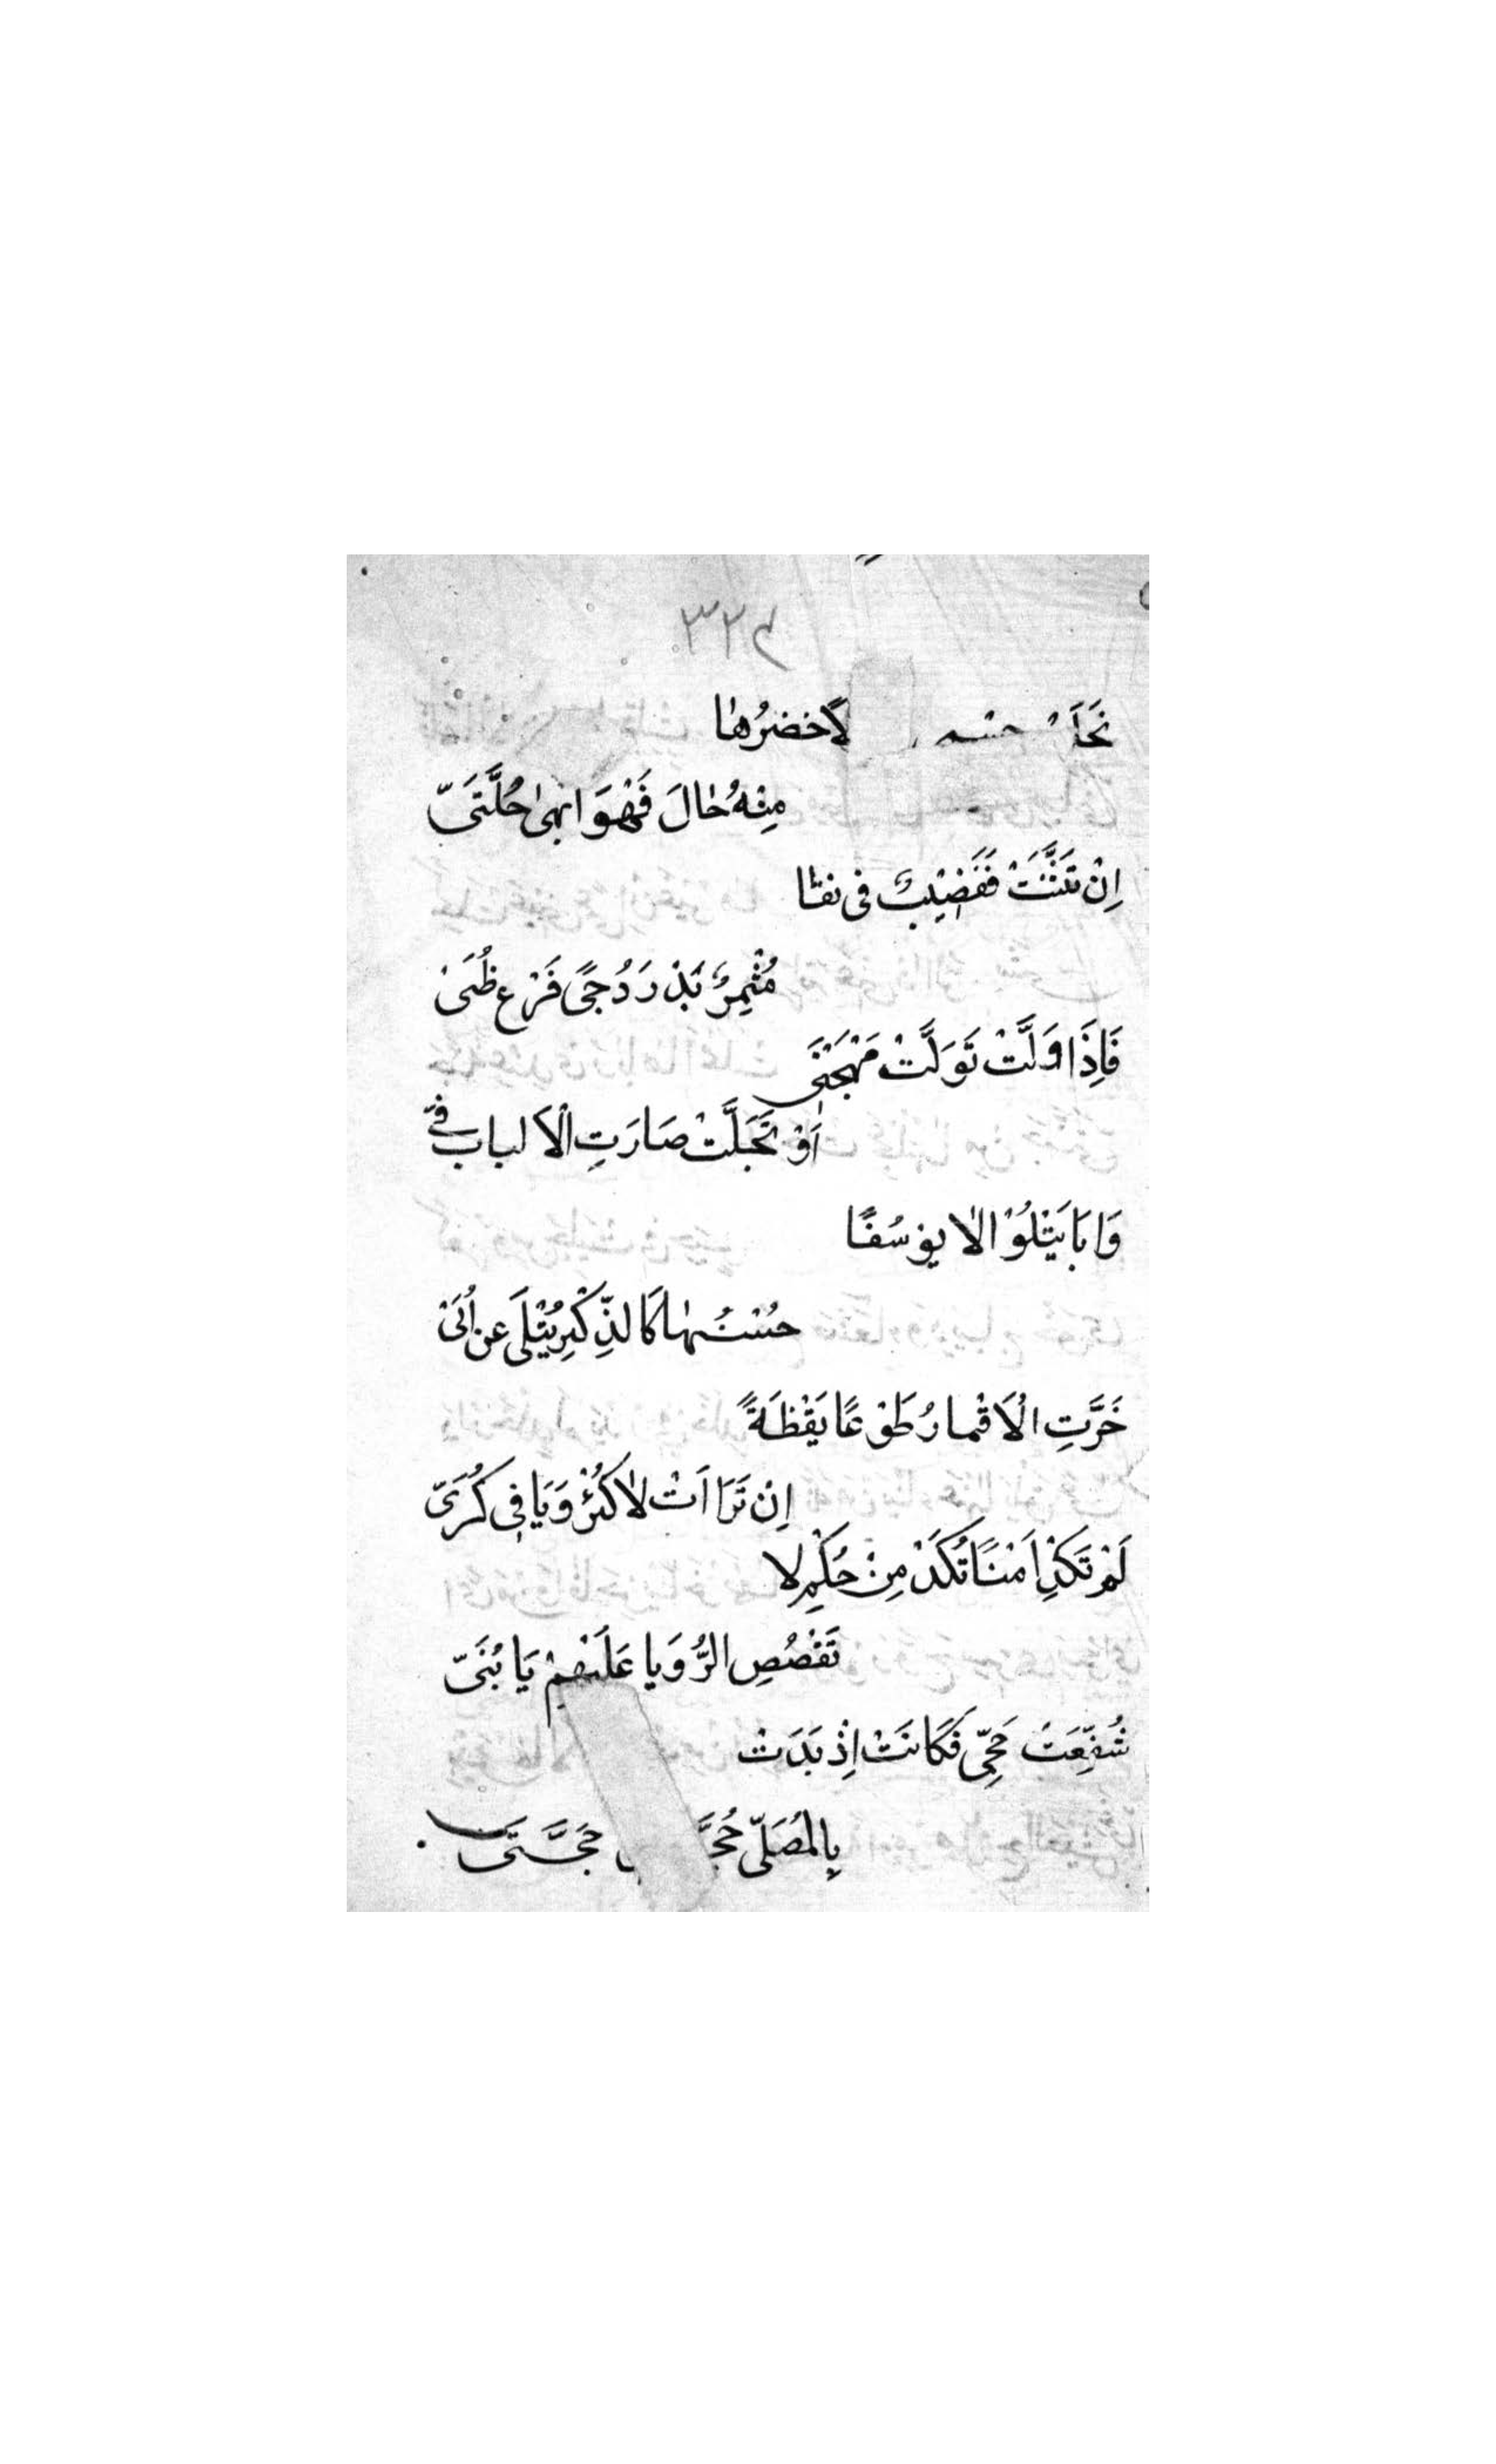 ٣٢٤
كاخضرها
مِنْهُ حَالَ فَهْوَ ابْهَى حُلَّتَيّ
اِنْ تَثَنَّتْ فَقَضِيْبٌ فى نقا
مُثْمِرٌ بَدْرَ دُجًى فَرْعِ ظُمَىْ
فَاِذَا وَلَّتْ تَوَلَّتْ مَهْجَتِى
اَوْ تَجَلَّتْ صَارَتِ الْاَلباب فَيّ
وَابَا يَتْلُوْ الا يوْسُفًا
حُسْنُهَا كَالذِّكْرِ يُتْلَى عن اُبَىْ
خَرَّتِ الْاَقْمار طَوْعًا يَقْظَةً
اِنْ تَرَااَتْ لا كَرُؤْيَا فِى كُرَىّ
لَمْ تَكَدْ اَمْنًا تُكَدْ مِنْ حُكْمِ لا
تَقْصُصِ الرُّوَيا عَلَيْهِمْ يَا بُنَىّ
شُفِّعَتْ حَجِّى فَكَانَتْ اِذْ بَدَتْ
بِالْمُصَلّى حُجَّ حَجَّتَىّ